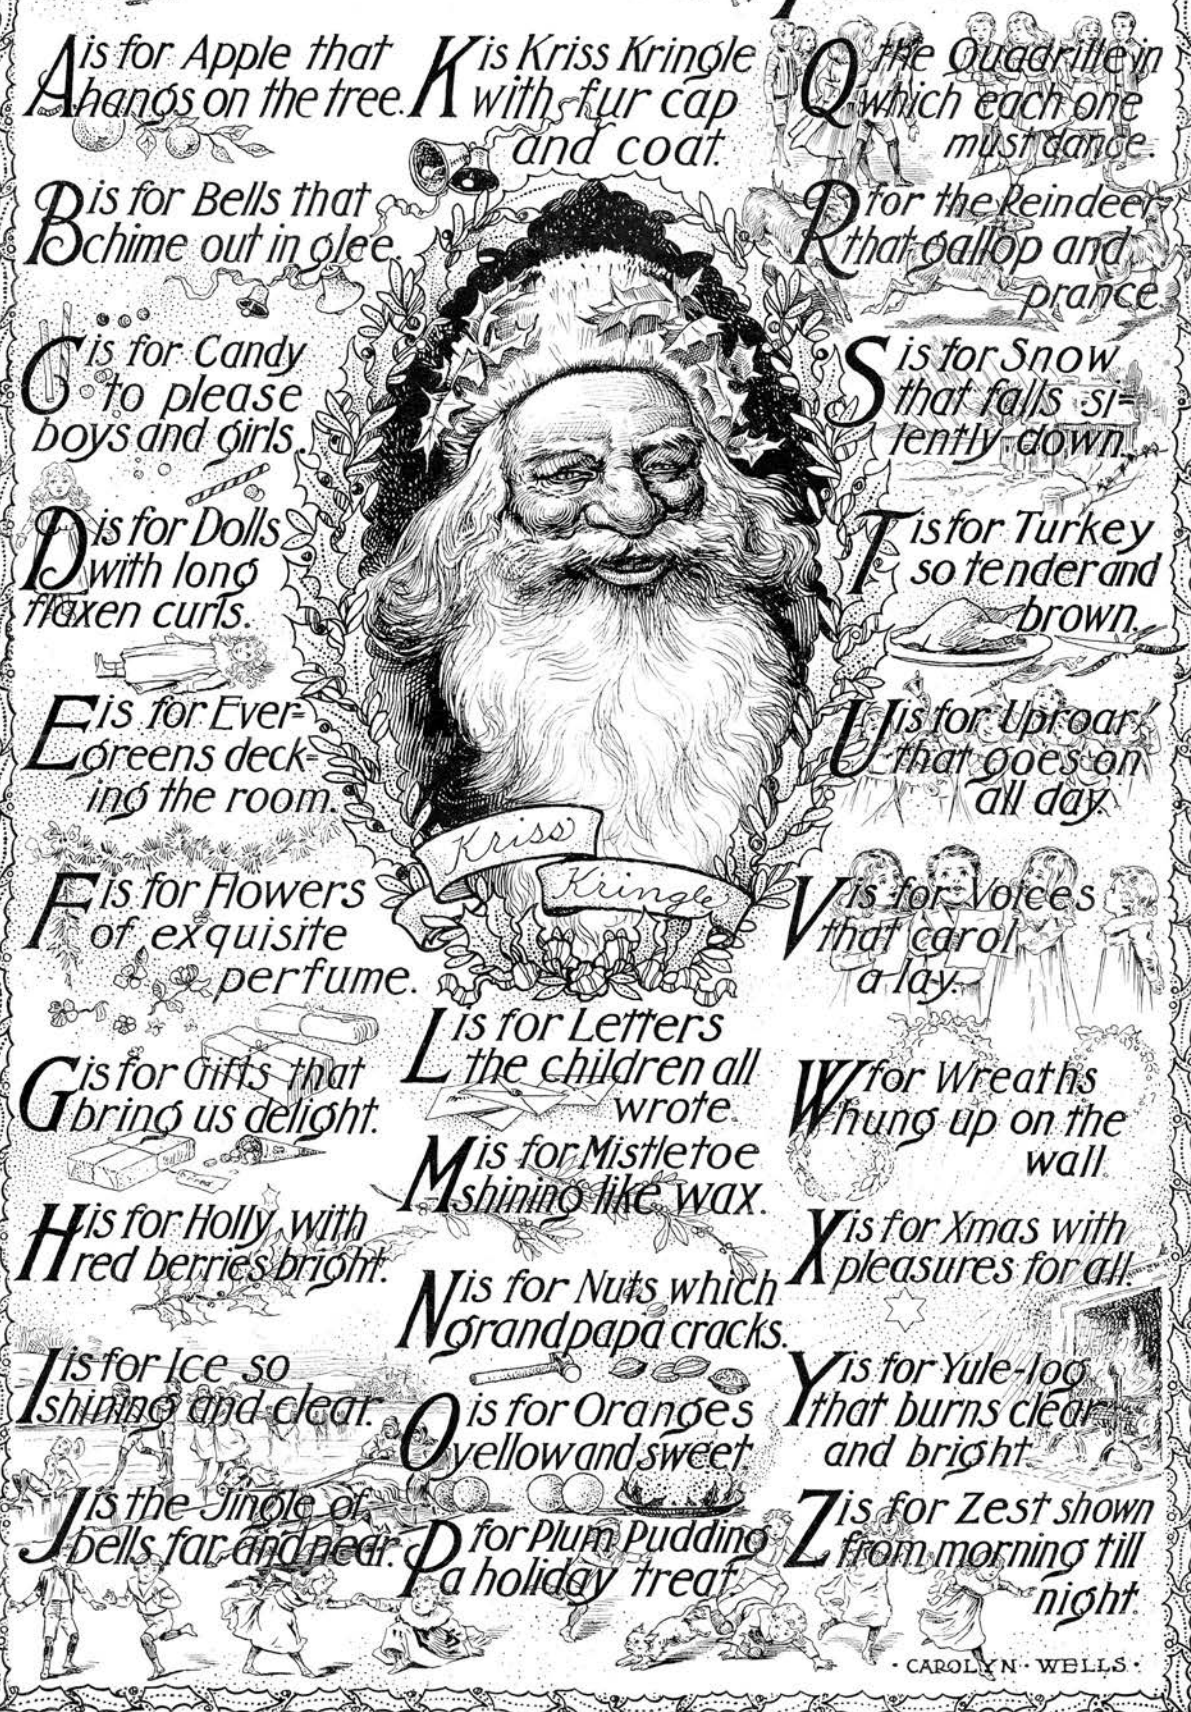 A is for Apple that
hangs on the tree.
B is for Bells that
chime out in glee.
C is for Candy
to please
boys and girls.
D is for Dolls
with long
flaxen curls.
E is for Ever=
greens deck=
ing the room.
F is for Flowers
of exquisite
perfume.
G is for Gifts that
bring us delight.
H is for Holly with
red berries bright.
I is for Ice so
shining and clear.
J is the Jingle of
bells far and near.
K is Kriss Kringle
with fur cap
and coat.
Kriss
Kringle
L is for Letters
the children all
wrote.
M is for Mistletoe
shining like wax.
N is for Nuts which
grandpapa cracks.
O is for Oranges
yellow and sweet.
P for Plum Pudding
a holiday treat.
Q the Quadrille in
which each one
must dance.
R for the Reindeer
that gallop and
prance.
S is for Snow
that falls si=
lently down.
T is for Turkey
so tender and
brown.
U is for Uproar
that goes on
all day.
V is for Voices
that carol
a-lay.
W for Wreaths
hung up on the
wall.
X is for Xmas with
pleasures for all.
Y is for Yule-log
that burns clear
and bright.
Z is for Zest shown
from morning till
night.
· CAROLYN · WELLS ·